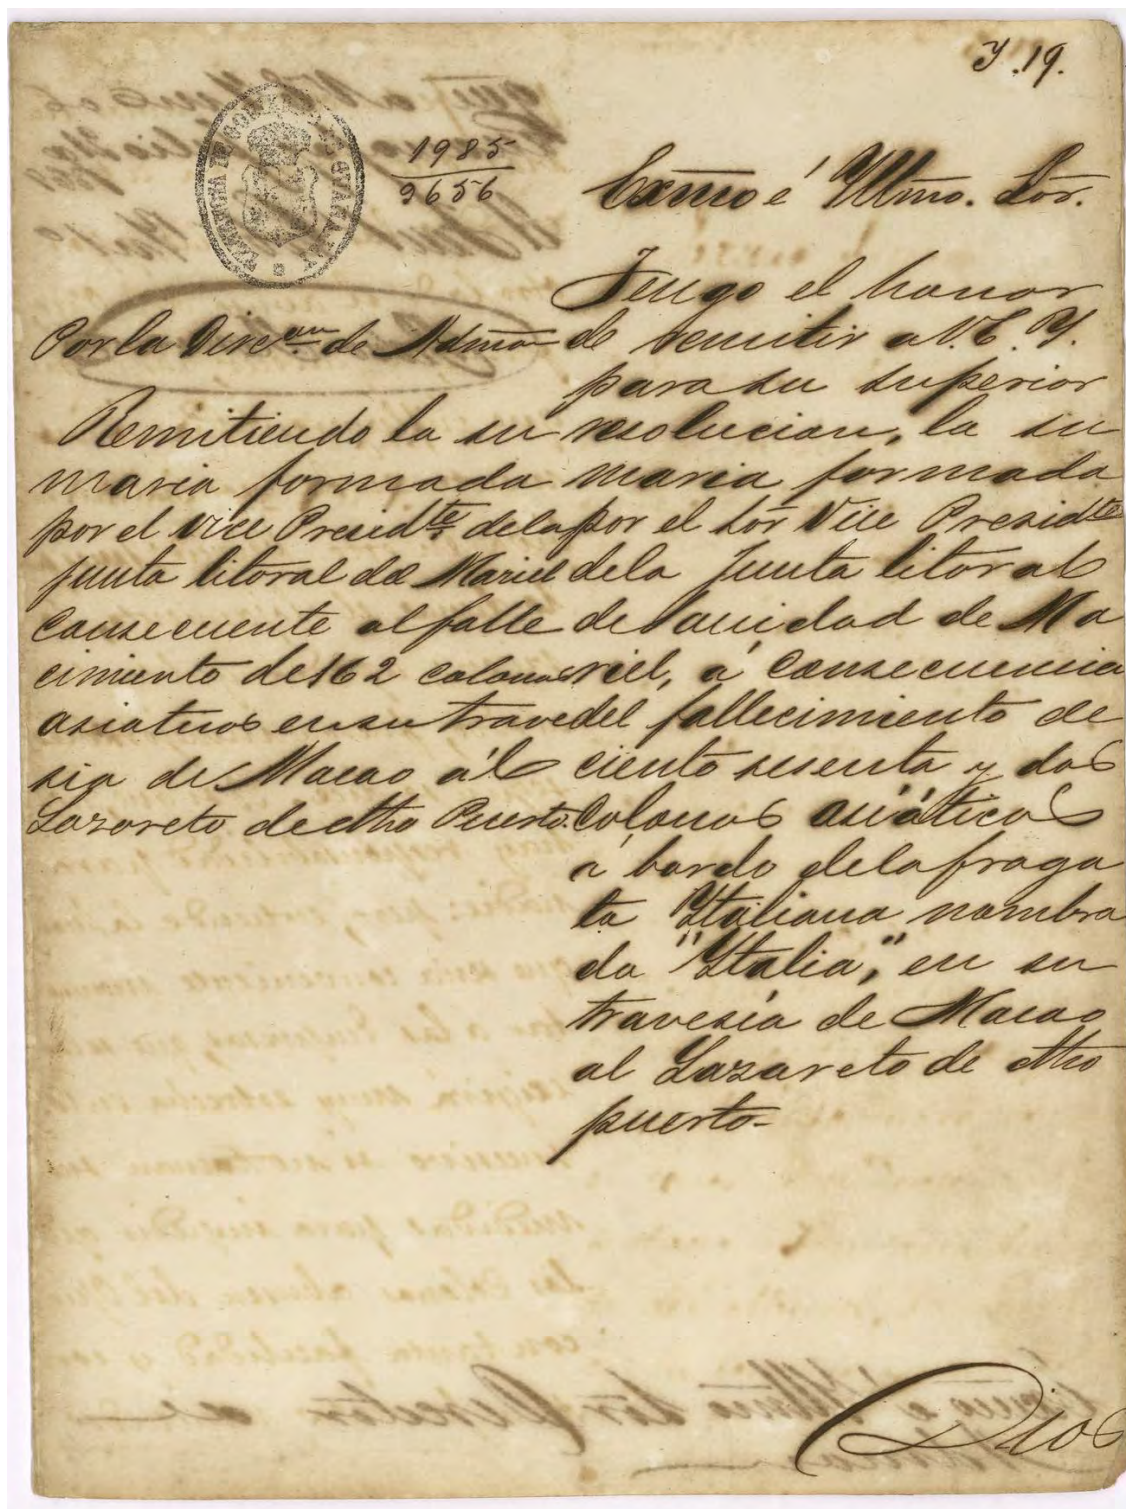 Y.19.
1985
9656
Exmo é Yltmo. Sor.
Por la Direcon. de Admon
Remitiendo la su
maria formada
por el Vice Presidte. de la
junta litoral del Mariel
consecuente al falle
cimiento de 162 colonos
asiaticos en su trave
sia de Macao ál
Lazareto de dho Puerto.
Tengo el honor
de remitir a V.E.Y.
para su superior
resolucion, la su
maria formada
por el Sor Vice Presidte
de la Junta litoral
de Sanidad de Ma
riel, á consecuencia
del fallecimiento de
ciento sesenta y dos
colonos asiáticos
á bordo de la fraga
ta Ytaliana nombra
da "Ytalia," en su
travesía de Macao
al Lazareto de dho
puerto-
Dios